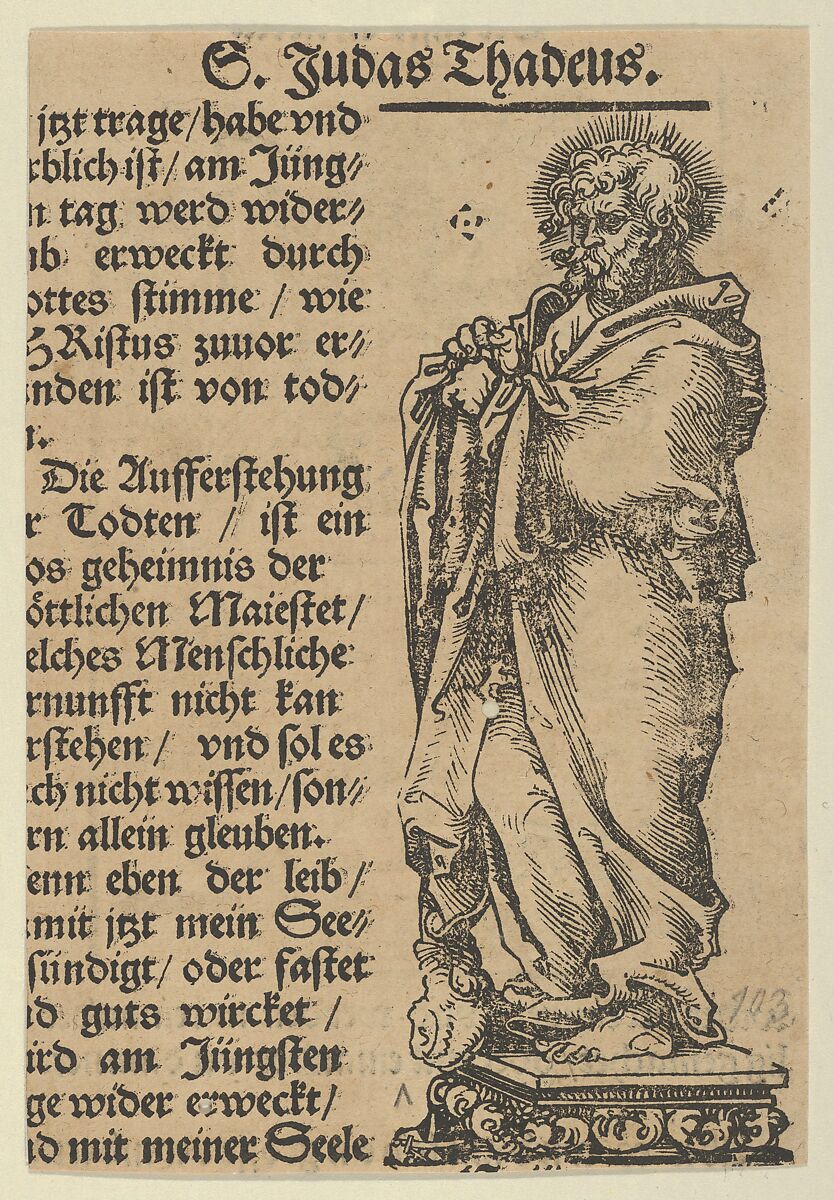 S. Judas Thadeus.
jtzt trage/ habe vnd
rblich ist/ am Jüng⸗
n tag werd wider⸗
ub erweckt durch
ottes stimme / wie
HRistus zuuor er⸗
nden ist von tod⸗
n.
Die Aufferstehung
r Todten / ist ein
os geheimnis der
öttlichen Maiestet/
elches Menschliche
rnunfft nicht kan
rstehen/ vnd sol es
ch nicht wissen/ son⸗
rn allein gleuben.
enn eben der leib/
mit jtzt mein See⸗
sündigt/ oder fastet
d guts wircket /
ird am Jüngsten
ge wider erweckt/
d mit meiner Seele
103